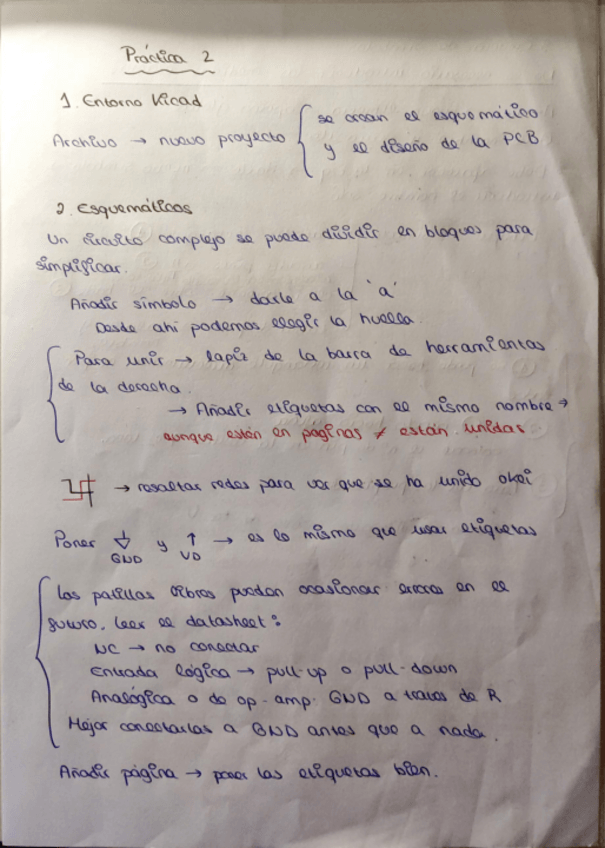 Práctica 2
1. Entorno Kicad
Archivo → nuevo proyecto { se crean el esquemático
y el diseño de la PCB
2. Esquemáticos
Un circuito complejo se puede dividir en bloques para
simplificar.
Añadir símbolo → darle a la 'a'
Desde ahí podemos elegir la huella.
Para unir → lapiz de la barra de herramientas
de la derecha.
→ Añadir etiquetas con el mismo nombre →
aunque estén en paginas ≠ están unidas
→ resaltar redes para ver que se ha unido okei
Poner GND y VD → es lo mismo que usar etiquetas
Las patillas libres pueden ocasionar errores en el
futuro. Leer el datasheet:
NC → no conectar
Entrada lógica → pull-up o pull-down
Analógica o de op-amp. GND a traves de R
Mejor conectarlas a GND antes que a nada.
Añadir página → poner las etiquetas bien.